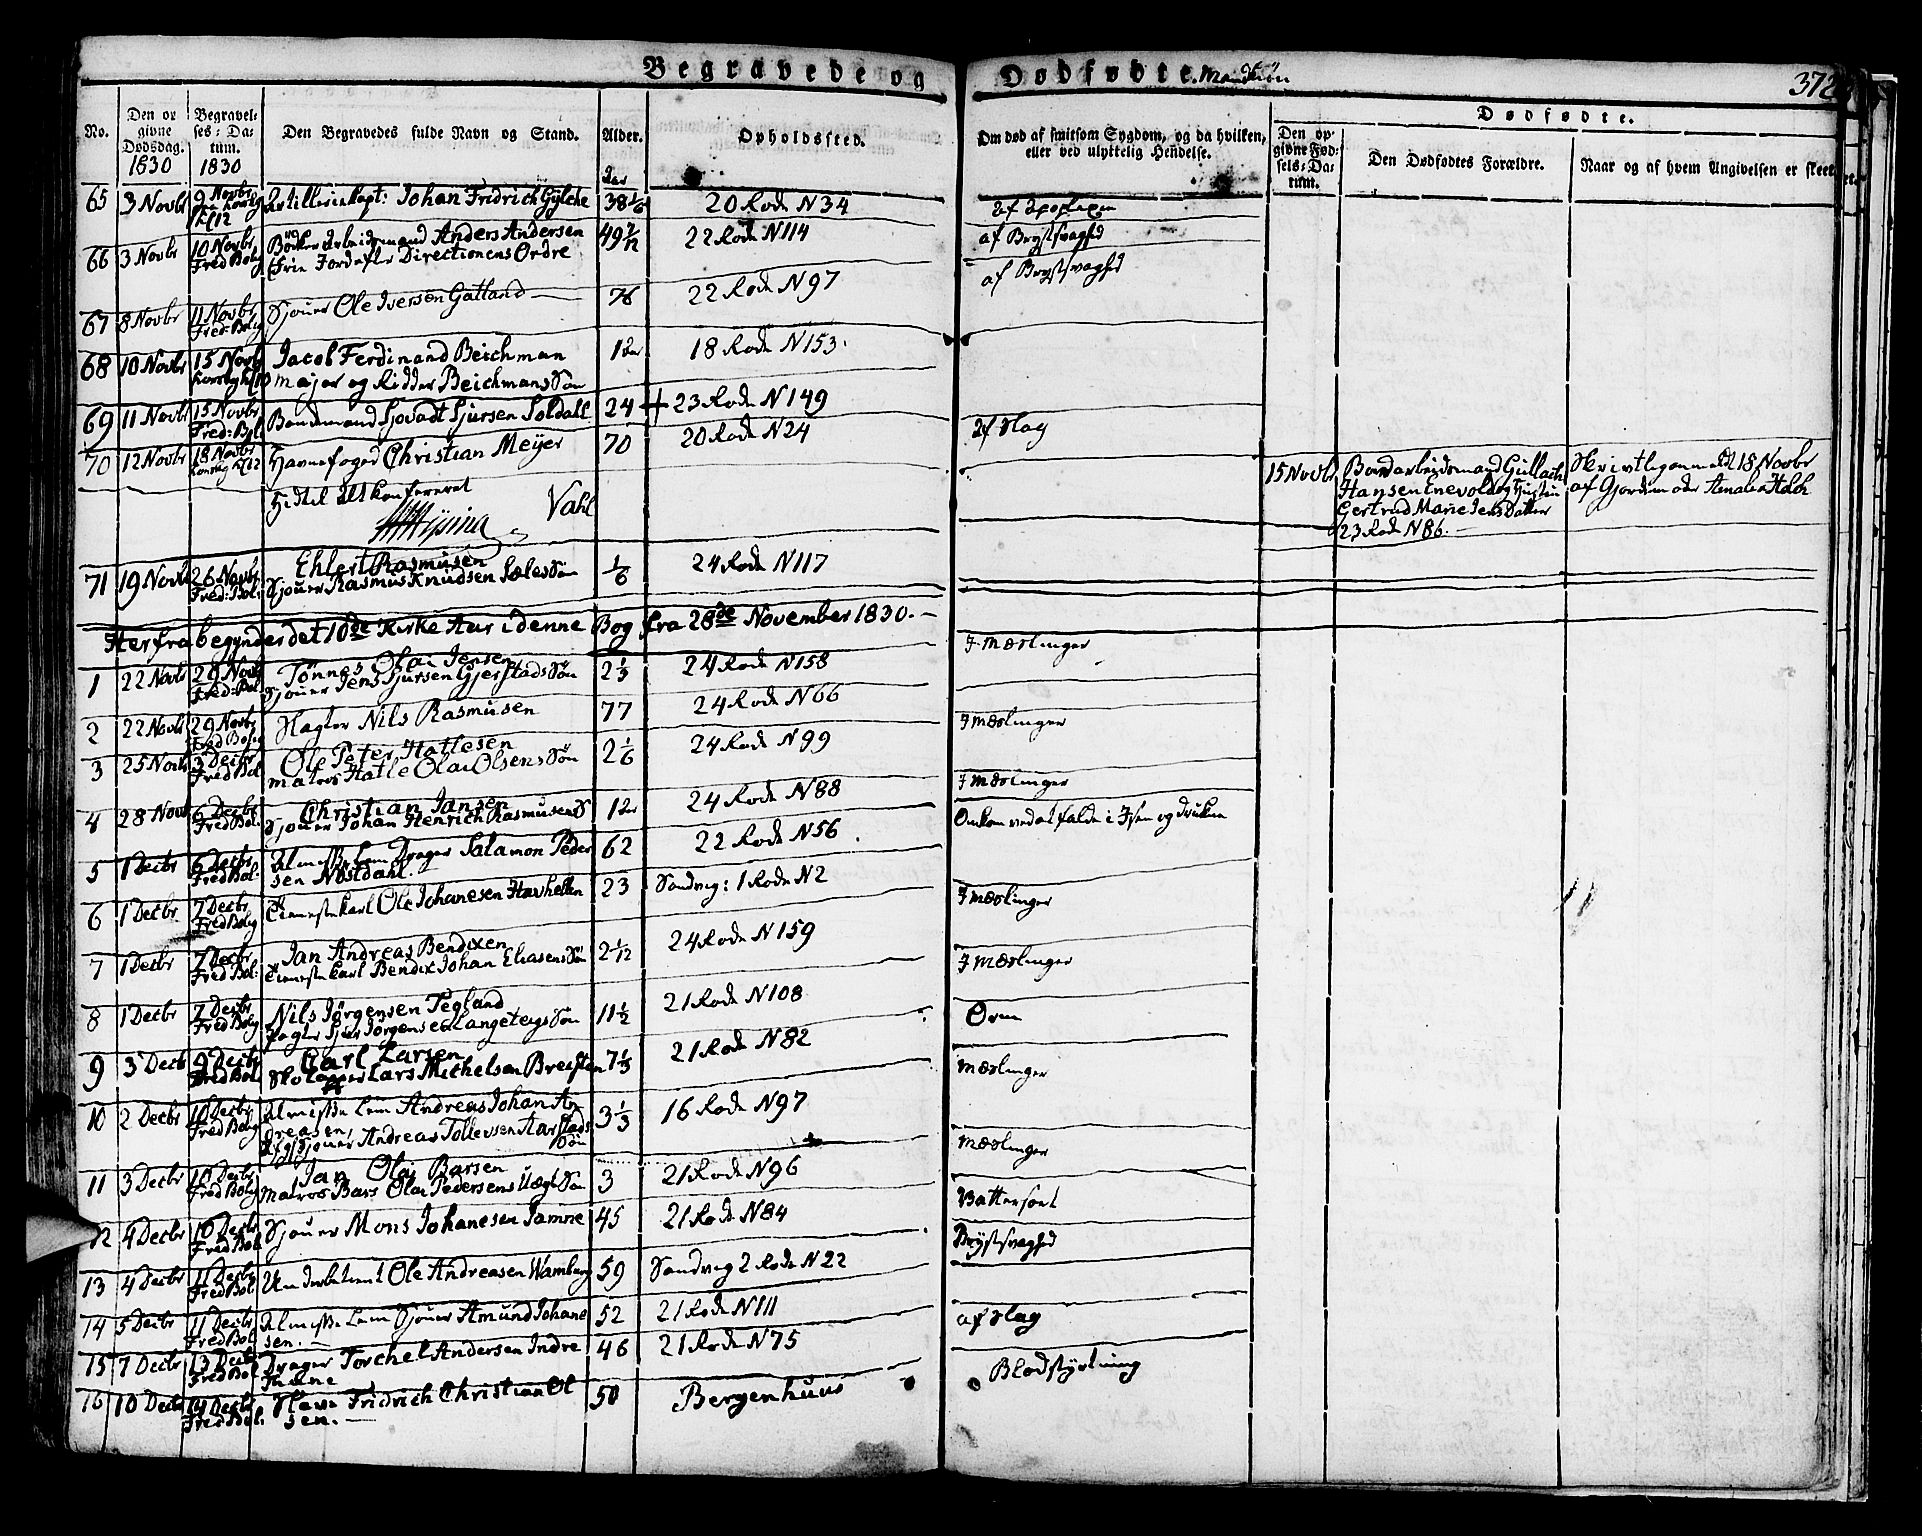 Begravede og Dødfødte. Mandkiøn
372
No.
Den opgivne Dødsdag. 1830
Begravelses-Datum. 1830
Den Begravedes fulde Navn og Stand.
Alder.
Opholdssted.
Om død af smitsom Sygdom, og da hvilken, eller ved ulyttelig Hendelse.
Dødfødte.
Den opgivne Fødsels-Datum.
Den Dødfødtes Forældre.
Naar og af hvem Angivelsen er skeet
65 3 Novbr 9 Novbr Kl 12 Artilleriekapt: Johan Fridrich Gylche 38 1/6 20 Rode N 34 af Apoplexi
66 3 Novbr 10 Novbr Fred Bolg Bødker Arbeidsmand Anders Andersen 49 22 Rode N 114 af Brystsvaghed
Frie Jord efter Directionens Ordre
af Brystsvaghed
67 8 Novbr 11 Novbr Fred: Bolg Sjouer Ole Iversen Gatland 76 22 Rode N 97
68 10 Novbr 15 Novbr Jacob Ferdinand Beichman 1 Aar 18 Rode N 153.
Major og Ridder Beichmans Søn
69 11 Novbr 15 Novbr Fred: Bol. Bondemand Sjovadt Sjursen Soldall 24 23 Rode N 149
70 12 Novbr 18 Novbr Kl 12 Havnefoged Christian Meÿer 70 20 Rode N 24 af Slag
15 Novbr Bordarbeidsmand Gullach
Hansen Enevold og Hustru
Gertrud Marie Jens Datter
23 Rode N 86.
Skrivtlig anmeldt 18 Novbr
af Gjordem oder Amalia Holch
Hidtil Alt konfereret
Vahl
71 19 Novbr 26 Novbr Fred: Bol: Ehlert Rasmusen 1/6 24 Rode N 117
Sjouer Rasmus Knudsen Sæles Søn
Herfra begynder det 10de Kirke Aar i denne Bog fra 28de November 1830.
1 22 Novbr 29 Novbr Fred: Bol Tønnes Olai Jensen 2 1/3 24 Rode N 158 I Mæslinger
Sjouer Jens Sjursen Gjerstads Søn
2 22 Novbr 29 Novbr Fred Bolg Vagter Nils Rasmusen 77 24 Rode N 66
3 25 Novbr 3 Decbr Fred Bol Ole Peter Hatlesen 2 1/6 24 Rode N 99 I Mæslinger
Matros Hatle Olai Olsens Søn
4 28 Novbr 6 Decbr Fred Bol. Christian Jansen 1 Aar 24 Rode N 88 I Mæslinger
Sjouer Johan Henrich Rasmusens S
5 1 Decbr 6 Decbr Fred Bol. Almisse Lem Drager Salamon Peder 62 22 Rode N 56 Omkom ved at falde i Søen og drukne
sen Nøstdahl.
6 1 Decbr 7 Decbr Fred Bolg Tienestekarl Ole Johanesen Havhellen 23 Sandvig: 1 Rode N 2 I Mæslinger
7 1 Decbr 7 Decbr Fred Bol: Jan Andreas Bendixen 2 1/12 24 Rode N 159 I Mæslinger
Tienestekarl Bendix Johan Eliasens Søn
8 1 Decbr 7 Decbr Fred Bolg Nils Jørgensen Tegland 11 1/2 21 Rode N 108 Orm
Vagter Sjur Jørgensen Langeteigs Søn
9 3 Decbr 9 Decbr Fred Bol. Carl Larsen 7 1/3 21 Rode N 82 Mæslinger
Skolappers Lars Michelsen Breisten
10 2 Decbr 10 Decbr Fred Bolg Almisse Lem Andreas Johan An 3 1/3 16 Rode N 97
dreasen,
Afg Sjouer Andreas Tollevsen Aarstads Søn Mæslinger
11 3 Decbr 10 Decbr Fred Bolg Jan Olai Barsen 3 21 Rode N 96
Matros Bars Olai Pedersens Uægt Søn Vattersoet
12 4 Decbr 10 Decbr Fred Bol. Sjouer Mons Johanesen Jamne 45 21 Rode N 84 Brystsvaghed
13 4 Decbr 11 Decbr Fred Bol. Underbetient Ole Andreasen Wamberg 59 Sandvig 2 Rode N 22
14 5 Decbr 11 Decbr Fred Bol Almisse Lem Sjouer Amund Johane 52 21 Rode N 111 af Slag
sen.
15 7 Decbr 13 Decbr Fred Bol Drager Torchel Andersen Indre 46 21 Rode N 75
Thime
Blodstyrtning
16 10 Decbr 14 Decbr Fred Bol. Slave Fridrich Christian Ol 50 Bergenhuus
sen.